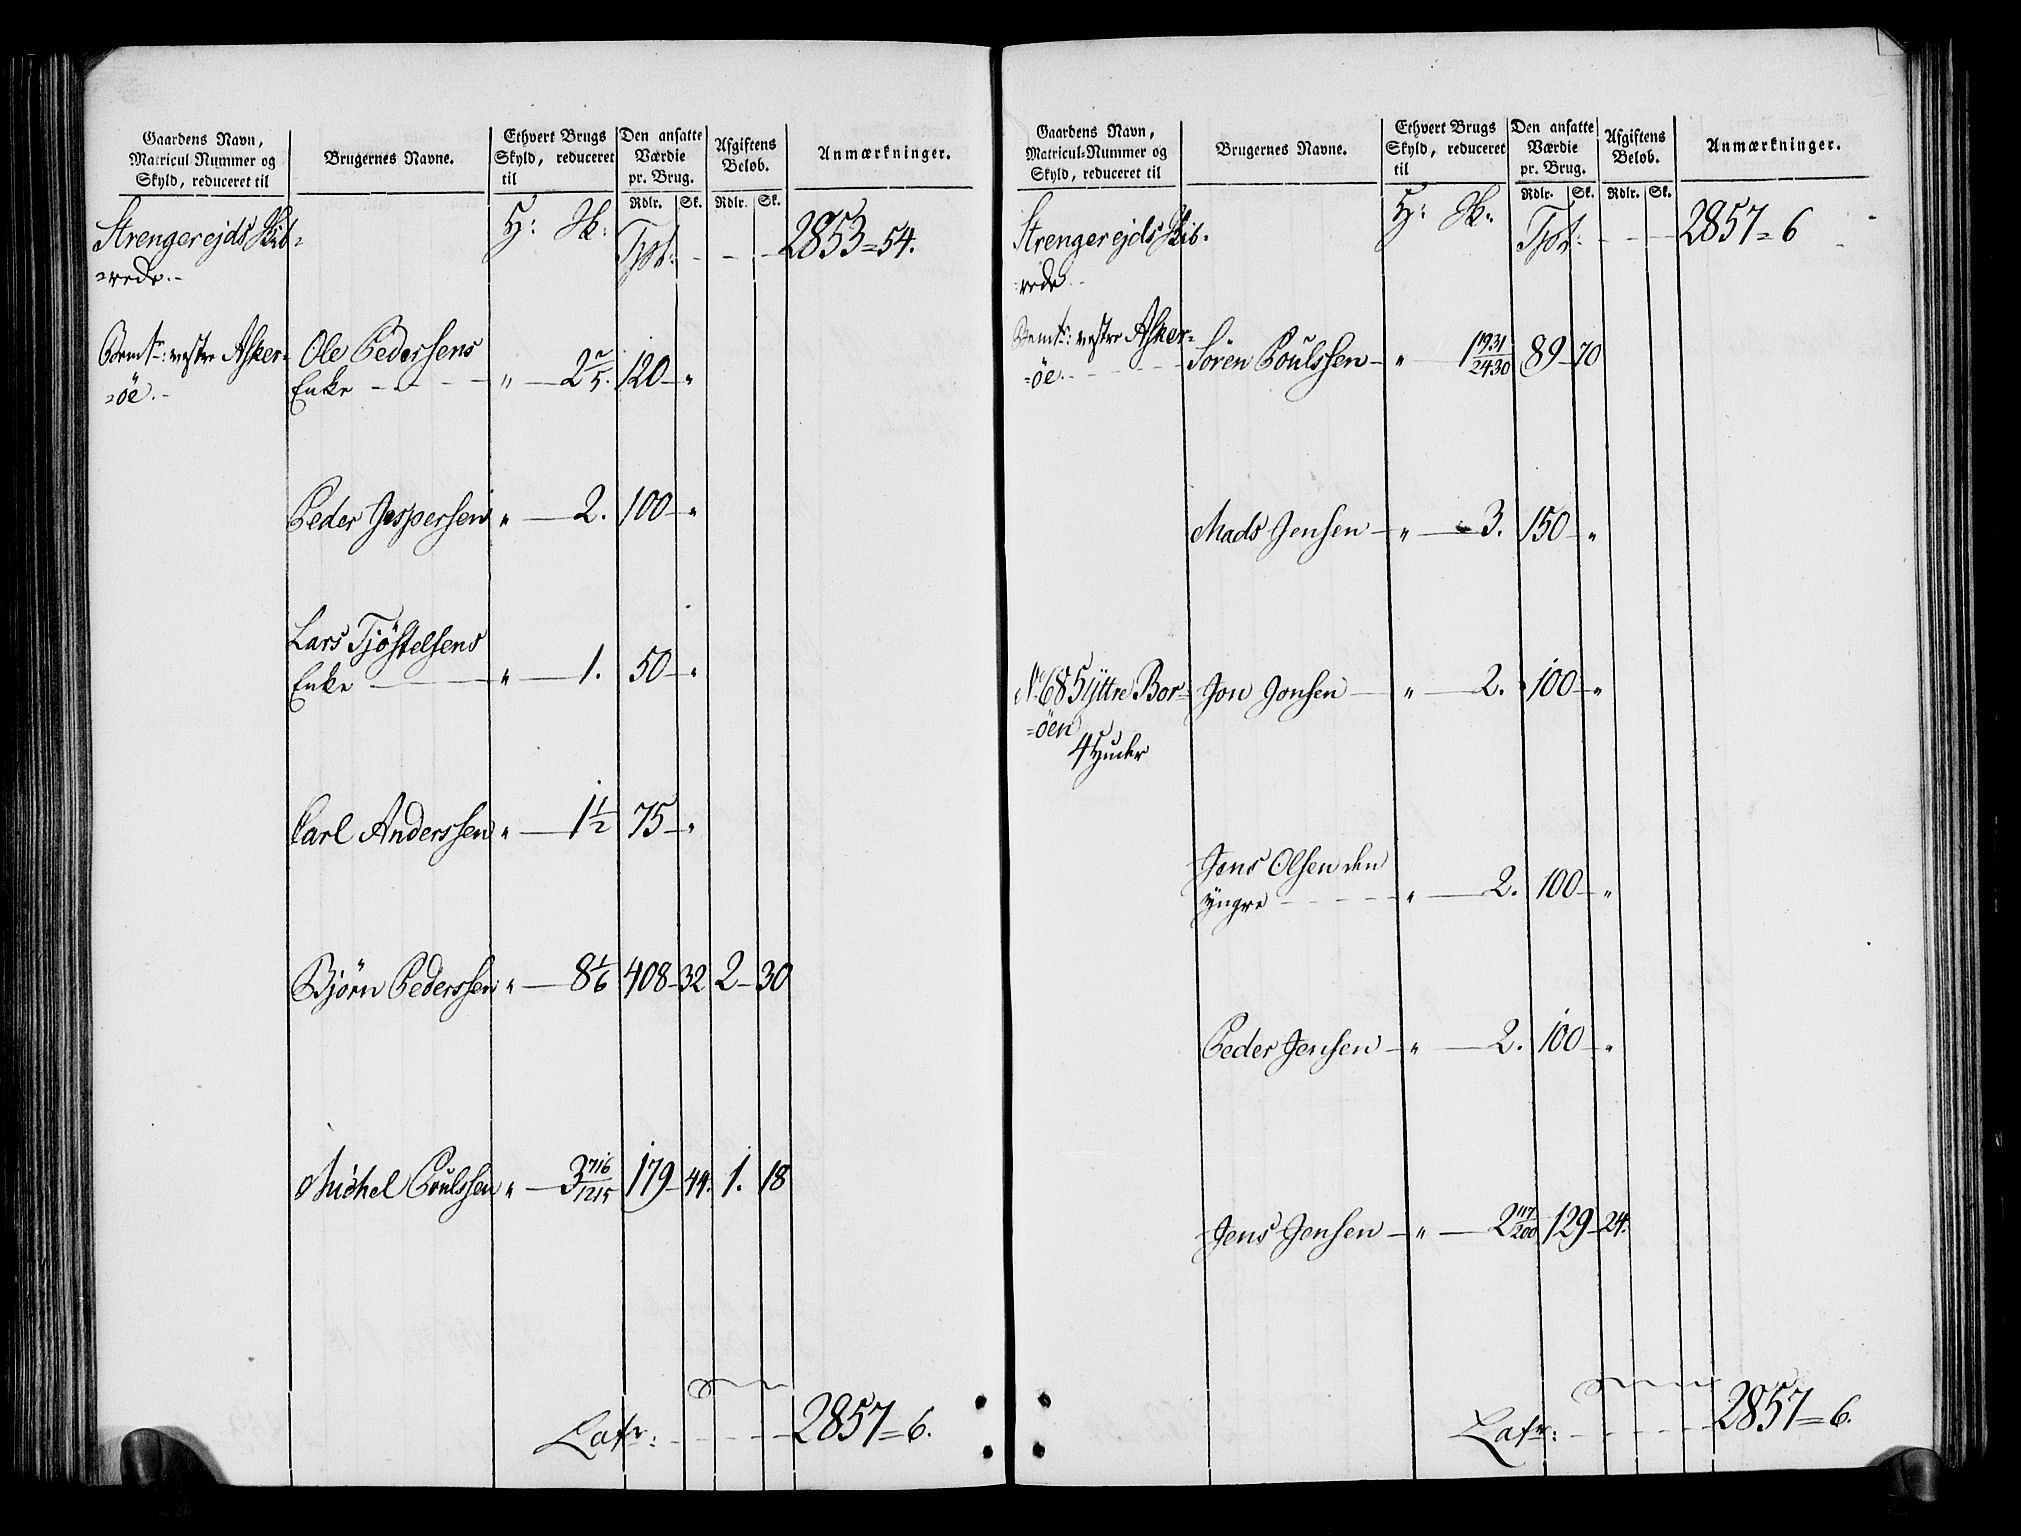 Gaardens Navn,
Matricul-Nummer og
Skyld, reduceret til
Brugernes Navne.
Ethvert Brugs
Skyld, reduceret
til
Den ansatte
Værdie
pr. Brug.
Afgiftens
Beløb.
Anmærkninger.
Rdlr. Sk. Rdlr. Sk.
Strengereids Skib-
H: Sk: Tpt: 2853=54.
=rede.-
Vemt: vestre Asker-
=öe.-
Ole Pedersens
Enke " 2 2/5. 120 "
Peder Jespersen " 2. 100 "
Lars Tjöstelsens
Enke " 1. 50 "
Carl Anderssen " 1 1/2 75 "
Bjørn Pederssen " 8 1/6 408 32 2 30
Michel Poulssen " 3 716/1215 179 44. 1. 18
Latr: 2857=6.
Gaardens Navn,
Matricul-Nummer og
Skyld, reduceret til
Brugernes Navne.
Ethvert Brugs
Skyld, reduceret
til
Den ansatte
Værdie
pr. Brug.
Afgiftens
Beløb.
Anmærkninger.
Rdlr. Sk. Rdlr. Sk.
Strengereids Skib-
H: Sk: Tpt: 2857=6
=rede.-
Vemt: vestre Asker-
=öe.
Sören Poulssen " 1 1931/2430 89 70
Mads Jensen " 3. 150 "
No 68 Syttre Bor- Jon Jonsen " 2. 100 "
=öen
4 Huder
Jens Olsen den
yngre " 2. 100 "
Peder Jensen " 2. 100 "
Jens Jensen " 2 117/200 129 24.
Latr: 2857=6.